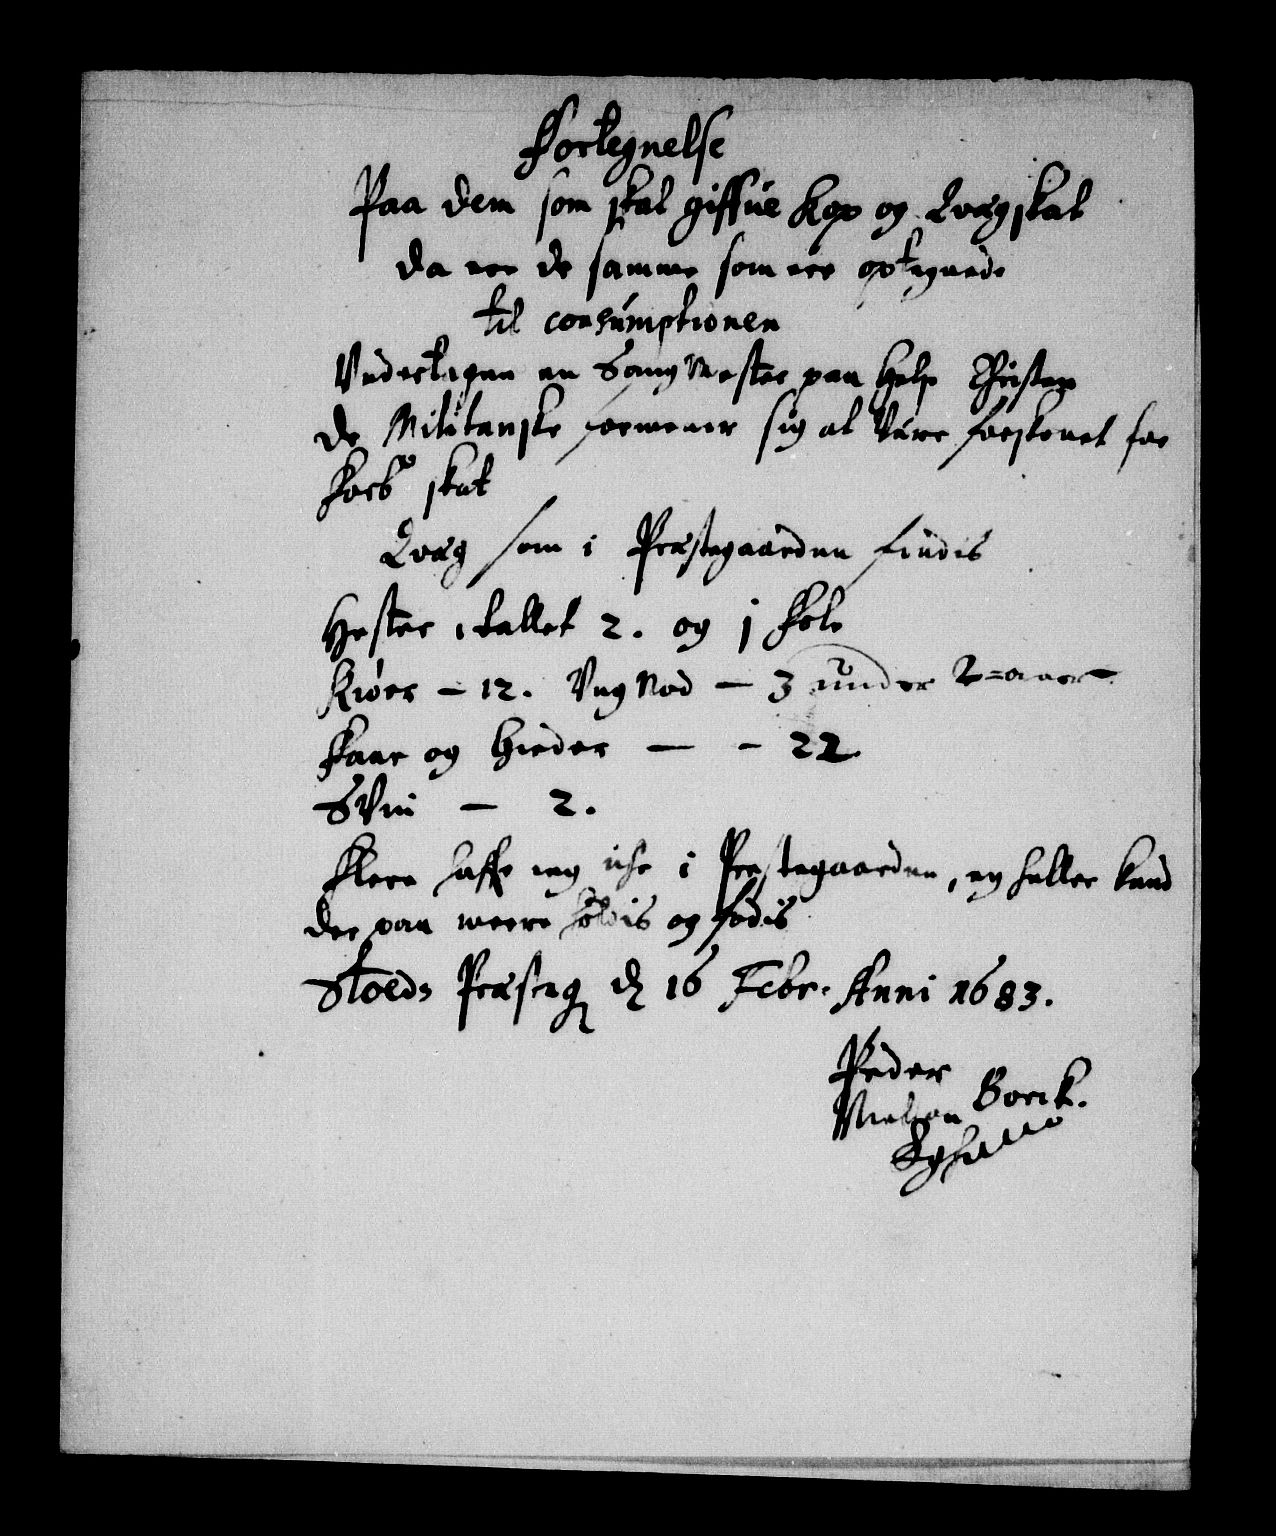 Fortegnelse
Paa dem som skal giffue Kop og Qvægskat
da ere de samme som ere optegnede
til consumptionen
Undertagen en Søny Mester paa Christen
de Militanske formener sig at være forskonet for
skat
Qvæg som i Præstegaarden findis
Hester i tallet 2. og j Føle
Kiøer – 12. Ung Nød – 3 under 2=aar –
Faar og Gieder — – 22
Sviin — 2.
Flere haffr ieg iche i Præstegaarden, ey heller kand
der paa meere holdis og fødis
Stoeds Præsteg d 16 Febr. Anni 1683.
Peder
Nielsøn Borck.